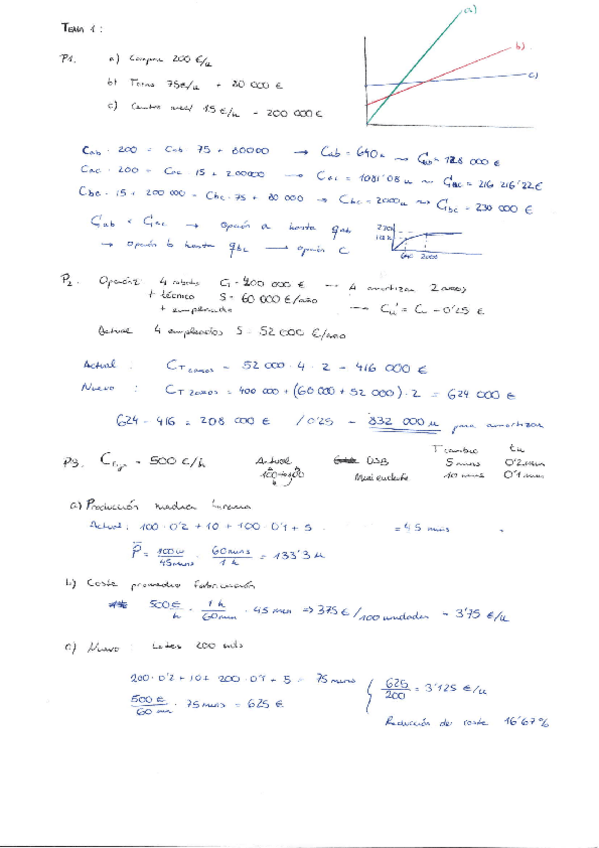 TEMA 1:
a)
b)
c)
P1. a) Compra 200 €/u
b) Torno 75€/u + 80 000 €
c) Centro mec/ 15 €/u - 200 000 €
Cab · 200 = Cab · 75 + 80000 → Cab = 640u ~ Gab = 128 000 €
Cac · 200 = Cac · 15 + 200000 → Cac = 1081'08 u ~ Gac = 216 216'22€
Cbc · 15 + 200 000 = Cbc · 75 + 80 000 → Cbc = 2000u ~ Gbc = 230 000 €
Gab < Gac → opción a hasta qab
→ opción b hasta qbc → opción c
640 2000
P2. Opción2 4 robots Ci = 400 000 € → 4 amortizar 2 años
+ técnico S = 60 000 €/año → Cu' = Cu - 0'25 €
+ empleado
Actual 4 empleados S = 52 000 €/año
Actual : CT 2años = 52 000 · 4 · 2 = 416 000 €
Nuevo : CT 2años = 400 000 + (60 000 + 52 000) · 2 = 624 000 €
624 - 416 = 208 000 € /0'25 = 832 000 u para amortizar
P3. = 500 €/h Actual USB T cambio tu
5 mins 0'2 min
10 mins 0'1 min
a) Producción
Actual: 100 · 0'2 + 10 + 100 · 0'1 + 5 = 45 mins
P̄ = 100u/45mins · 60mins/1h = 133'3 u
b) Coste promedio fabricación
500€/h · 1h/60min · 45 min => 375 €/100 unidades = 3'75 €/u
c) Nuevo : Lotes 200 uds
200 · 0'2 + 10 + 200 · 0'1 + 5 = 75 mins
500 €/60 min · 75 mins = 625 €
625/200 = 3'125 €/u
Reducción del coste 16'67%